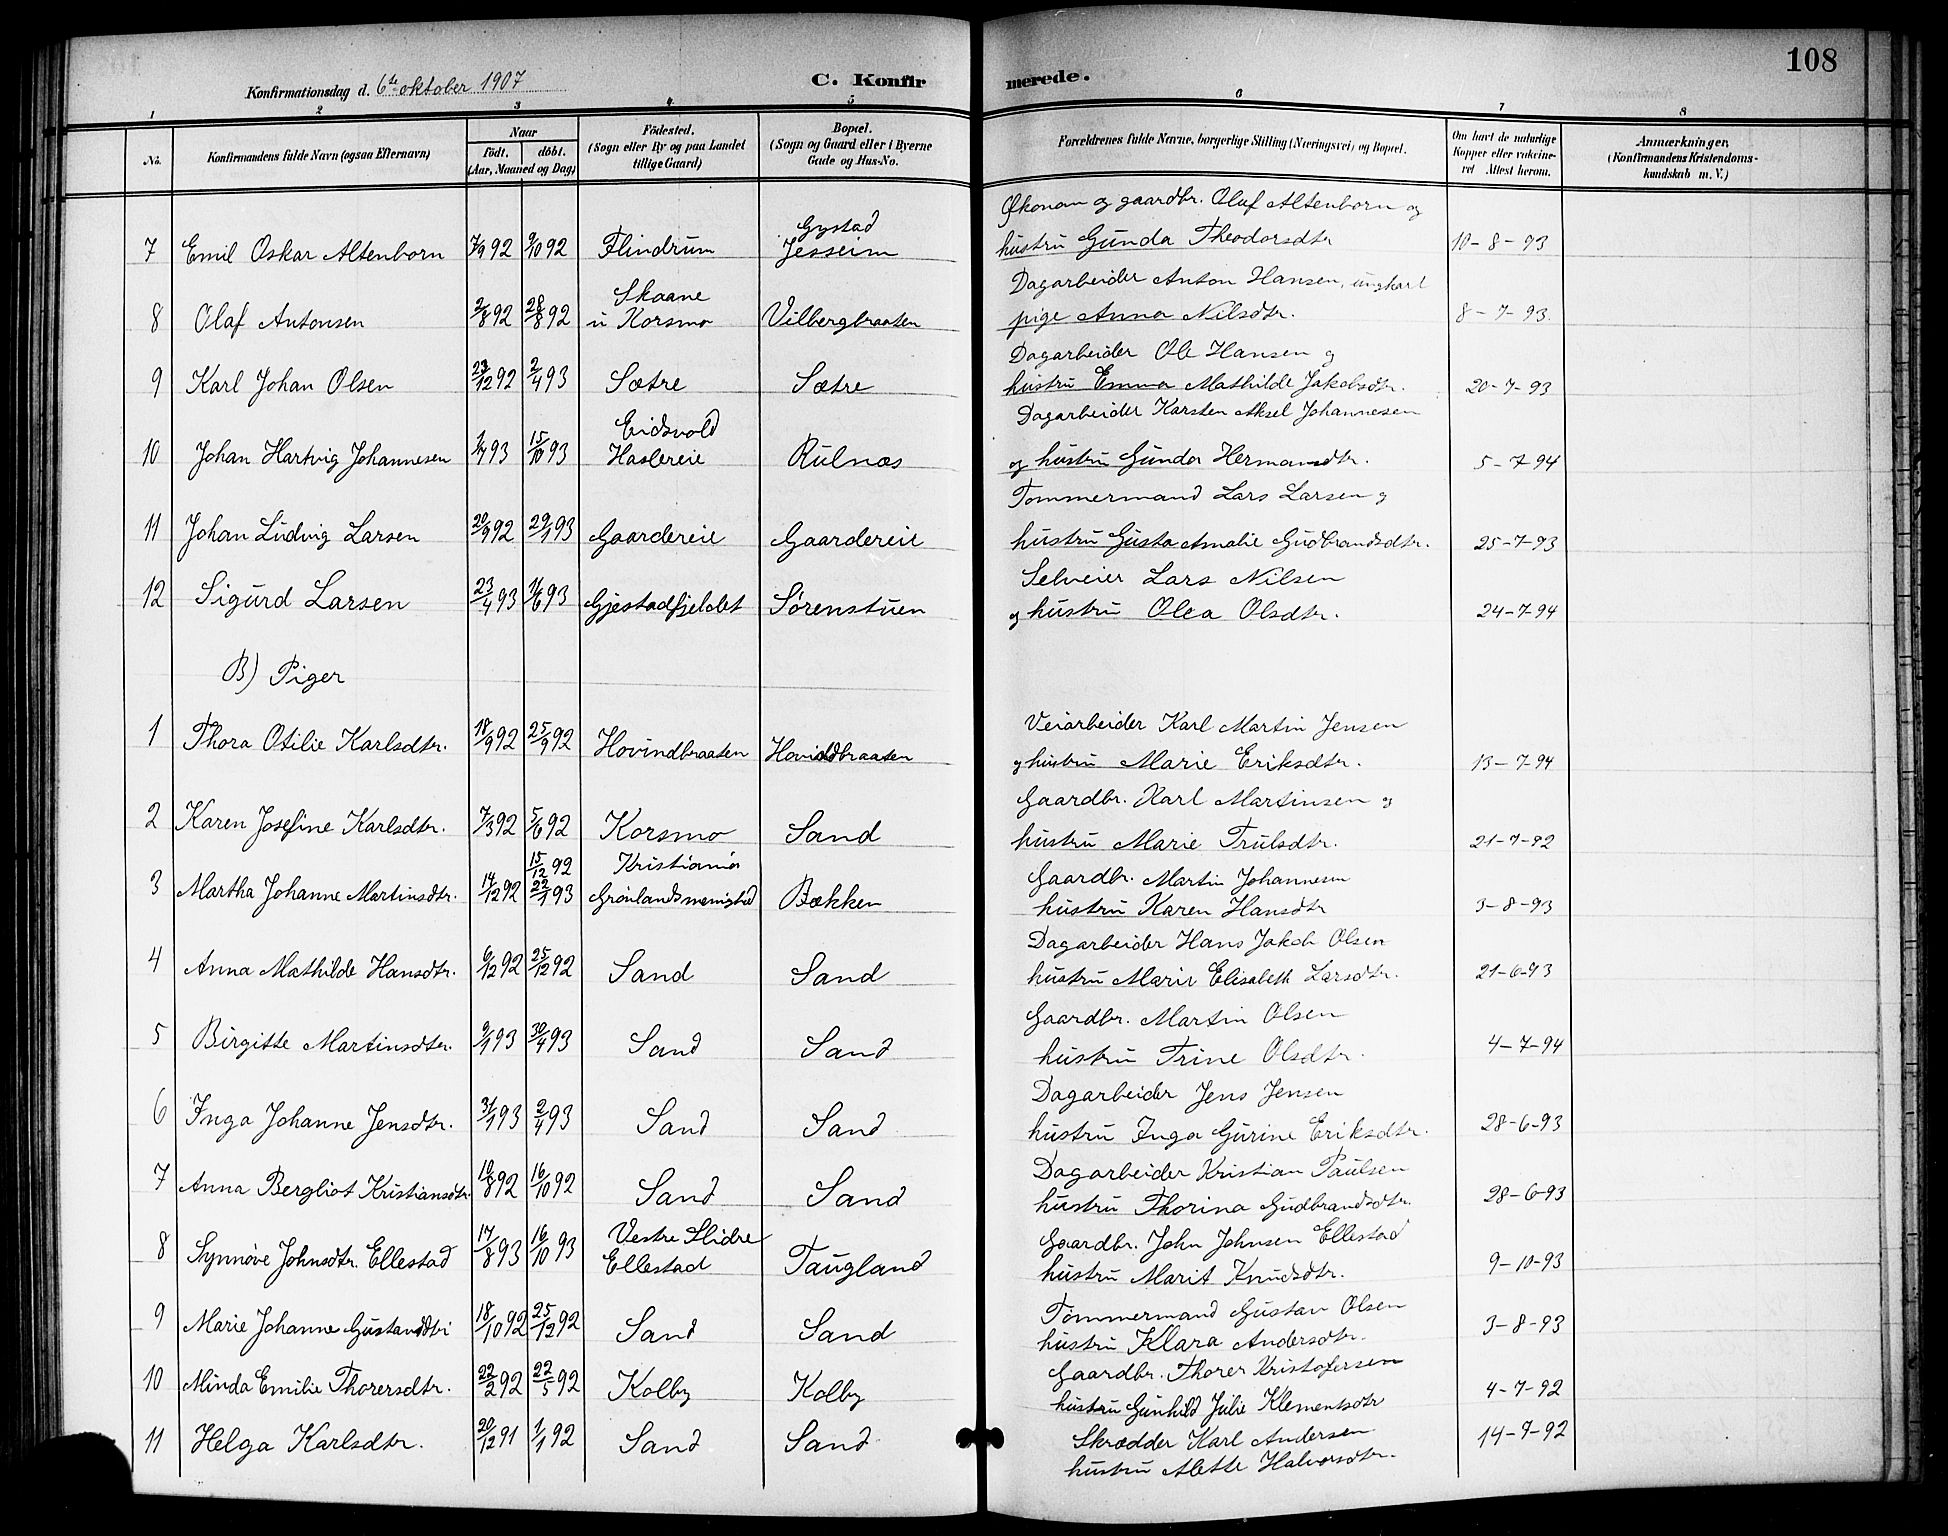 108
Konfirmationsdag d. 6te oktober 1907
C. Konfirmerede.
1 2 3 4 5 6 7 8
No. | Konfirmandens fulde Navn (ogsaa Efternavn) | Naar født. døbt. (Aar, Maaned og Dag) | Födested. (Sogn eller By og paa Landet tillige Gaard) | Bopæl. (Sogn og Gaard eller i Byerne Gade og Hus-No. | Forældrenes fulde Navne, borgerlige Stilling (Næringsvei) og Bopæl. | Om havt de naturlige Kopper eller vakcineret Attest herom. | Anmærkninger. (Konfirmandens Kristendomskundskab m. V.)
7 | Emil Oskar Altenborn | 7/9 92 | 9/10 92 | Flindrum | Gystad Jesseim | Økonom og gaardbr. Oluf Altenborn og hustru Gunda Theodorsdtr | 10-8-93
8 | Olaf Antonsen | 2/8 92 | 28/8 92 | Skaane u Korsmo | Vilbergbraaten | Dagarbeider Anton Hansen, ungkarl pige Anna Nilsdtr. | 8-7-93.
9 | Karl Johan Olsen | 23/12 92 | 2/4 93 | Sætre | Sætre | Dagarbeider Ole Hansen og hustru Emma Mathilde Jakobsdtr. | 20-7-93
10 | Johan Hartvig Johannesen | 1/7 93 | 15/10 93 | Eidsvold Haslereie | Rulnæs | Dagarbeider Karsten Aksel Johannesen og hustru Gunda Hermansdtr. | 5-7-94
11 | Johan Ludvig Larsen | 20/9 92 | 29/1 93 | Gaardereie | Gaardereie | Tømmermand Lars Larsen og hustru Gusta Amalie Gudbrandsdtr. | 25-7-93
12 | Sigurd Larsen | 23/4 93 | 11/6 93 | Gjestadfjeldet | Sørenstuen | Selveier Lars Nilsen og hustru Olea Olsdtr. | 24-7-94
B) Piger
1 | Thora Otilie Karlsdtr. | 18/9 92 | 25/9 92 | Hovindbraaten | Hovindbraaten | Veiarbeider Karl Martin Jensen og hustru Marie Eriksdtr. | 13-7-94
2 | Karen Josefine Karlsdtr. | 7/3 92 | 5/6 92 | Korsmo | Sand | Gaardbr. Karl Martinsen og hustru Marie Trulsdtr. | 21-7-92
3 | Martha Johanne Martinsdtr. | 14/12 92 | 15/12 92 22/1 93 | Kristiania Grønlandsmenighed | Bækken | Gaardbr. Martin Johannesen hustru Karen Hansdtr | 3-8-93
4 | Anna Mathilde Hansdtr. | 6/12 92 | 25/12 92 | Sand | Sand | Dagarbeider Hans Jakob Olsen hustru Marie Elisabeth Larsdtr. | 21-6-93
5 | Birgitte Martinsdtr. | 9/1 93 | 30/4 93 | Sand | Sand | Gaardbr. Martin Olsen hustru Trine Olsdtr. | 4-7-94
6 | Inga Johanne Jensdtr. | 31/1 93 | 2/4 93 | Sand | Sand | Dagarbeider Jens Jensen hustru Inga Gurine Eriksdtr. | 28-6-93
7 | Anna Bergliot Kristiansdtr. | 10/8 92 | 16/10 92 | Sand | Sand | Dagarbeider Kristian Paulsen hustru Thorina Gudbrandsdtr. | 28-6-93
8 | Synnøve Johnsdtr. Ellestad | 17/8 93 | 16/10 93 | Vestre Slidre Ellestad | Taugland | Gaardbr. John Johnsen Ellestad hustru Marit Knudsdtr. | 9-10-93
9 | Marie Johanne Gustavsdtr | 18/10 92 | 25/12 92 | Sand | Sand | Tømmermand Gustav Olsen hustru Klara Andersdtr. | 3-8-93
10 | Minda Emilie Thorersdtr. | 22/2 92 | 22/5 92 | Kolby | Kolby | Gaardbr. Thorer Kristofersen hustru Gunhild Julie Klementsdtr | 4-7-92
11 | Helga Karlsdtr. | 20/12 91 | 1/1 92 | Sand | Sand | Skrædder Karl Andersen hustru Alette Halvorsdtr. | 14-7-92